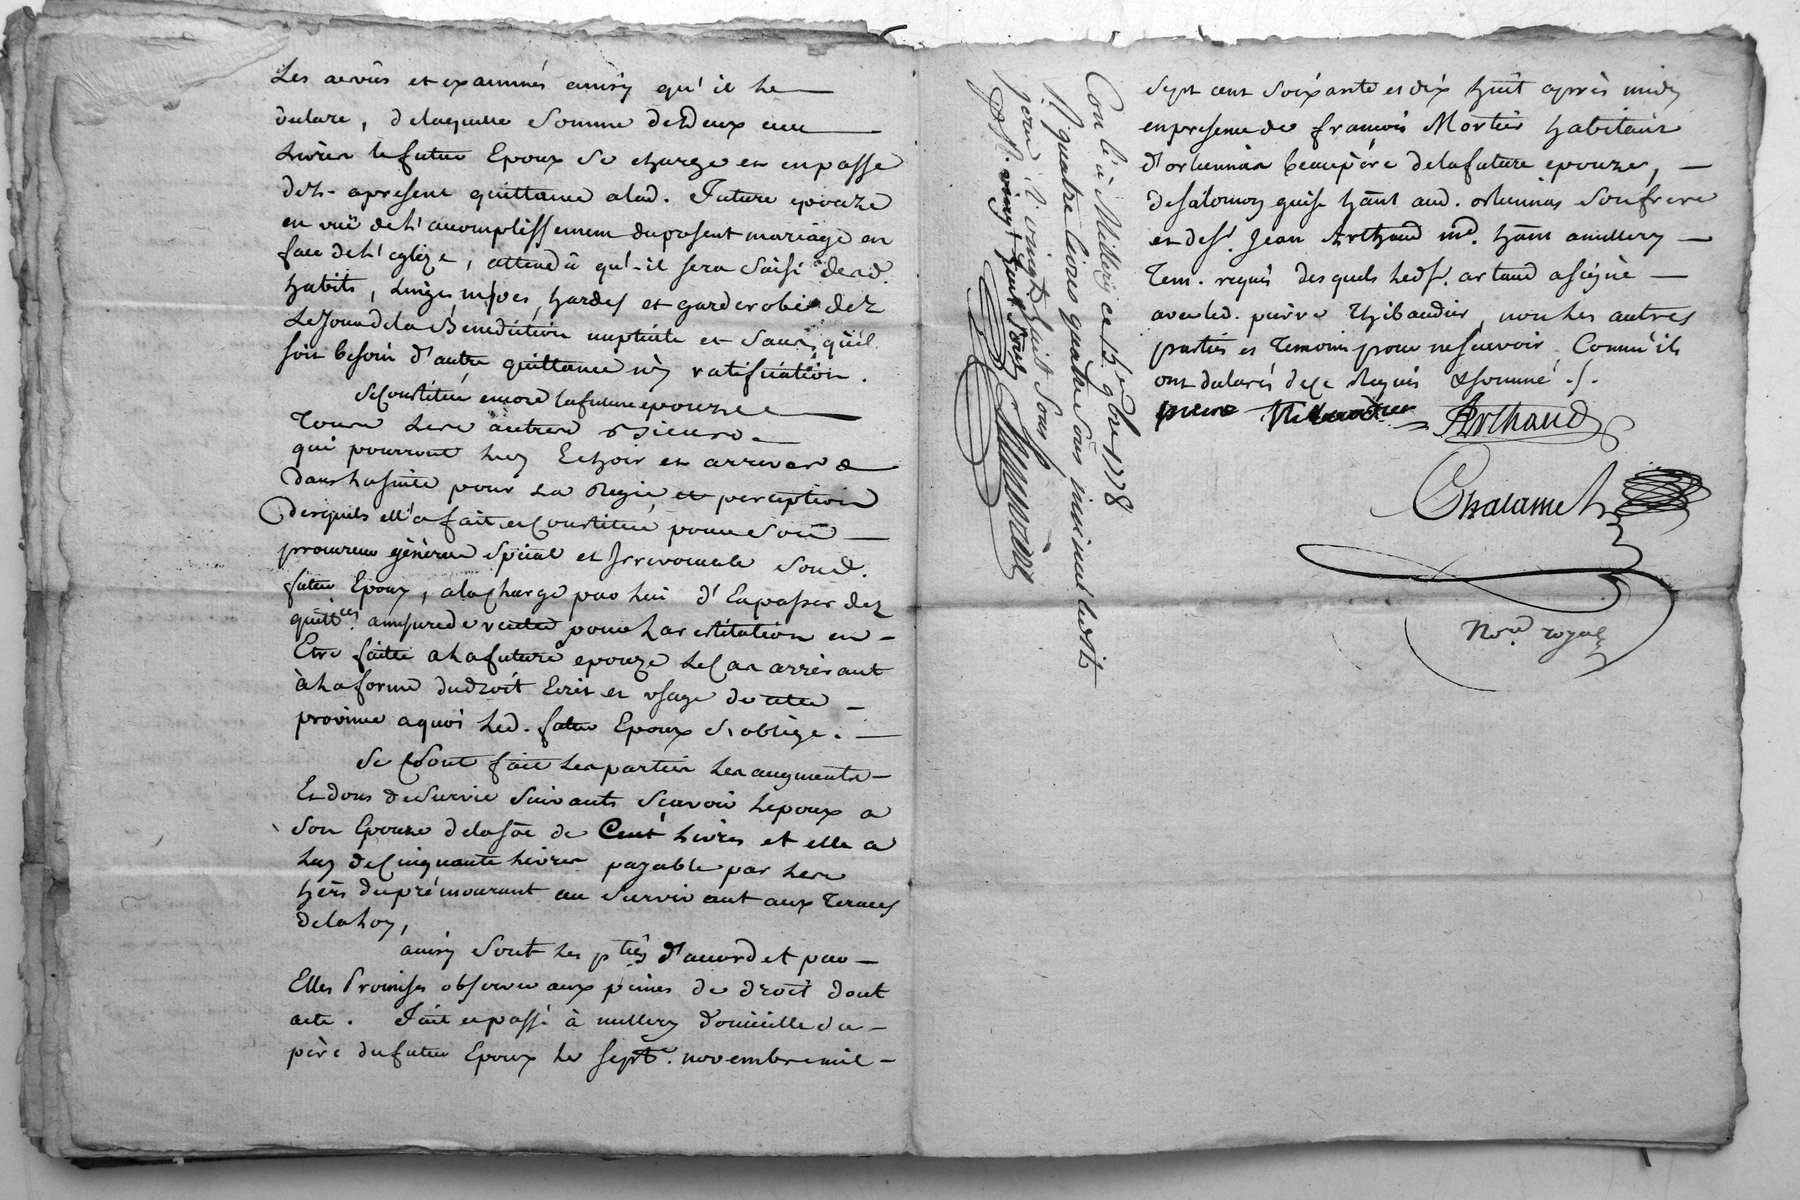 Les avoir vûs et examinés ainsy qu'il le
declare, de laquelle somme de Deux cent
Livres le futur Epoux se charge et en passe
dez-apresent quittance alad. Future epouze
en vuë de l'acomplissement du present mariage en
face de l'eglize, attendû qu'il sera saisi desd.
habits, linges nipes, hardes et garderobe dez
Le Jour de la Bénédiction nuptiale et sans qu'il
soit besoin d'autre quittance ny ratification.
Se Constitüe encore la future epouze
Tous ses autres Biens
qui pourront luy Echoir et arriver
dans la suite pour La Regie et perception
desquels elle a fait et Constitué pour son
procureur général spécial et Irrevocable sond.
futur Epoux, a la Charge par lui d'En passer dez
quittces. a mesure de recette pour La restitution en
Etre faitte a la future epouze le Cas arrivant
à la forme du droit Ecrit et usage de cette
province a quoi led. futur Epoux s'oblige.
Se sont fait les parties les augments
Et dons de Survie Suivants Scavoir l'epoux a
son Epouze de la so͞e de Cent livres et elle a
luy de Cinquante livres payable par les
hers du prémourant au Survivant aux Termes
de la Loy,
ainsy sont les ptiës d'acord et par
Elles Promises observer aux peines de droit dont
acte. Fait et passé à millery domicille du
père du futur Epoux le septe. novembre mil
Con lé à Millery ce 15 9bre 1778
R/ quatre livres quatre sous, insinué led. jour
vingt huit sous
vingt huit sous
sept cent soixante et dix huit après midy
en presence de francois Mortier habitant
d'orliennas beaupère de la future epouze,
de Salomon guise h͞ant aud. orliennas son frere
et de sr. Jean Arthaud md. h͞ant a millery
Tem. requis des quels led sr. artaud a signé
avec led. pierre Thibaudier, non les autres
parties et Temoins pour ne scavoir Comm'ils
ont declarés de ce Requis & sommé ./.
pierre Thibaudier Arthaud
Chalamel
Nore. royal